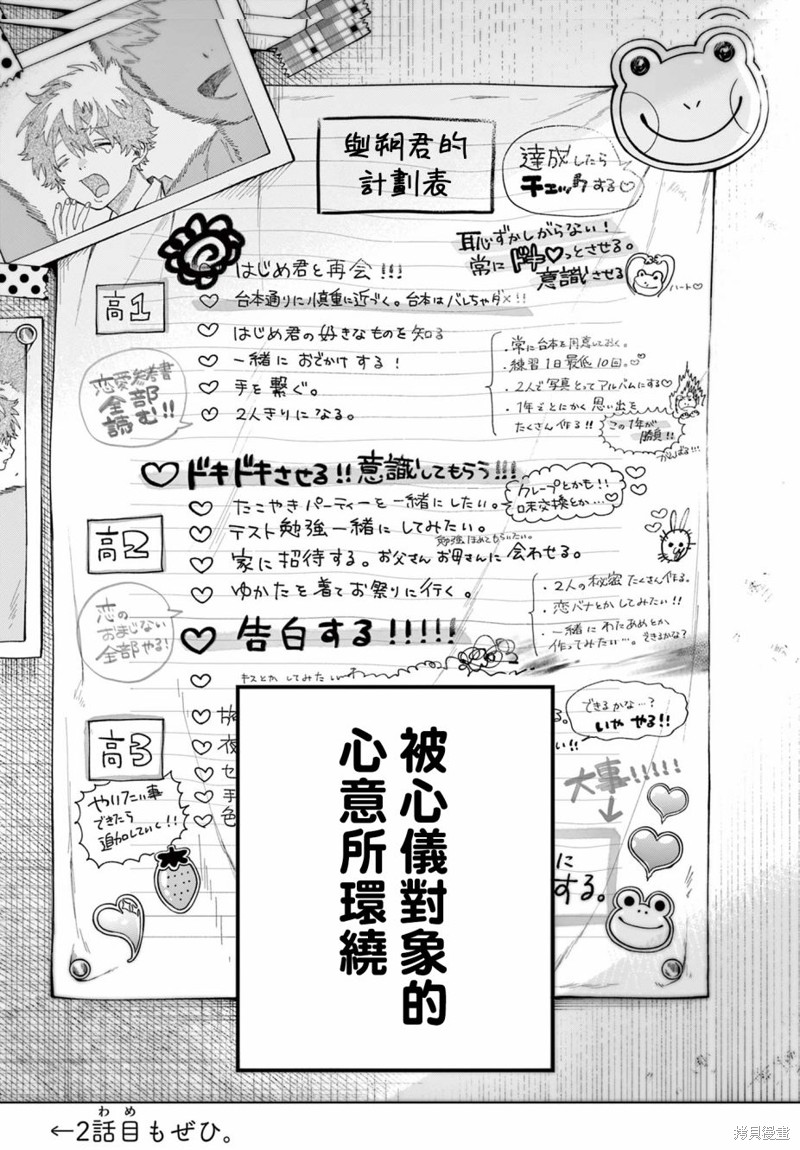 與朔君的
計劃表
達成したら
チェックする♡
はじめ君と再会!!!
恥ずかしがらない!
常にドキ♡っとさせる。
意識させる
ハート♡
高1
台本通りに慎重に近づく。台本はバレちゃダ×!!
はじめ君の好きなものを知る
一緒におでかけする!
手を繋ぐ。
2人きりになる。
・常に台本を用意しておく。
・練習1日最低10回。
・2人で写真とってアルバムにする♡
・1年でとにかく思い出を
たくさん作る!!
この1年が
勝負!!
がんばる!!
恋愛参考書
全部
読む!!
ドキドキさせる!!意識してもらう!!!
たこやきパーティーを一緒にしたい。
クレープとかも!!
味交換とか…♡
高2
テスト勉強一緒にしてみたい。
勉強ほめてもらいたい。
家に招待する。お父さんお母さんに会わせる。
ゆかたを着てお祭りに行く。
・2人の秘密たくさん作る。
・恋バナとかしてみたい!!
・一緒にわたあめとか
作ってみたい…。できるかな?
恋の
おまじない
全部やる!
告白する!!!!!
キスとかしてみたい
高3
できるかな…?
いややる!!
い!!
大事!!!!!
やりたい事
できたら
追加していく!!
に
する。
被心儀對象的
心意所環繞
わめ
←2話目もぜひ。
拷貝漫畫